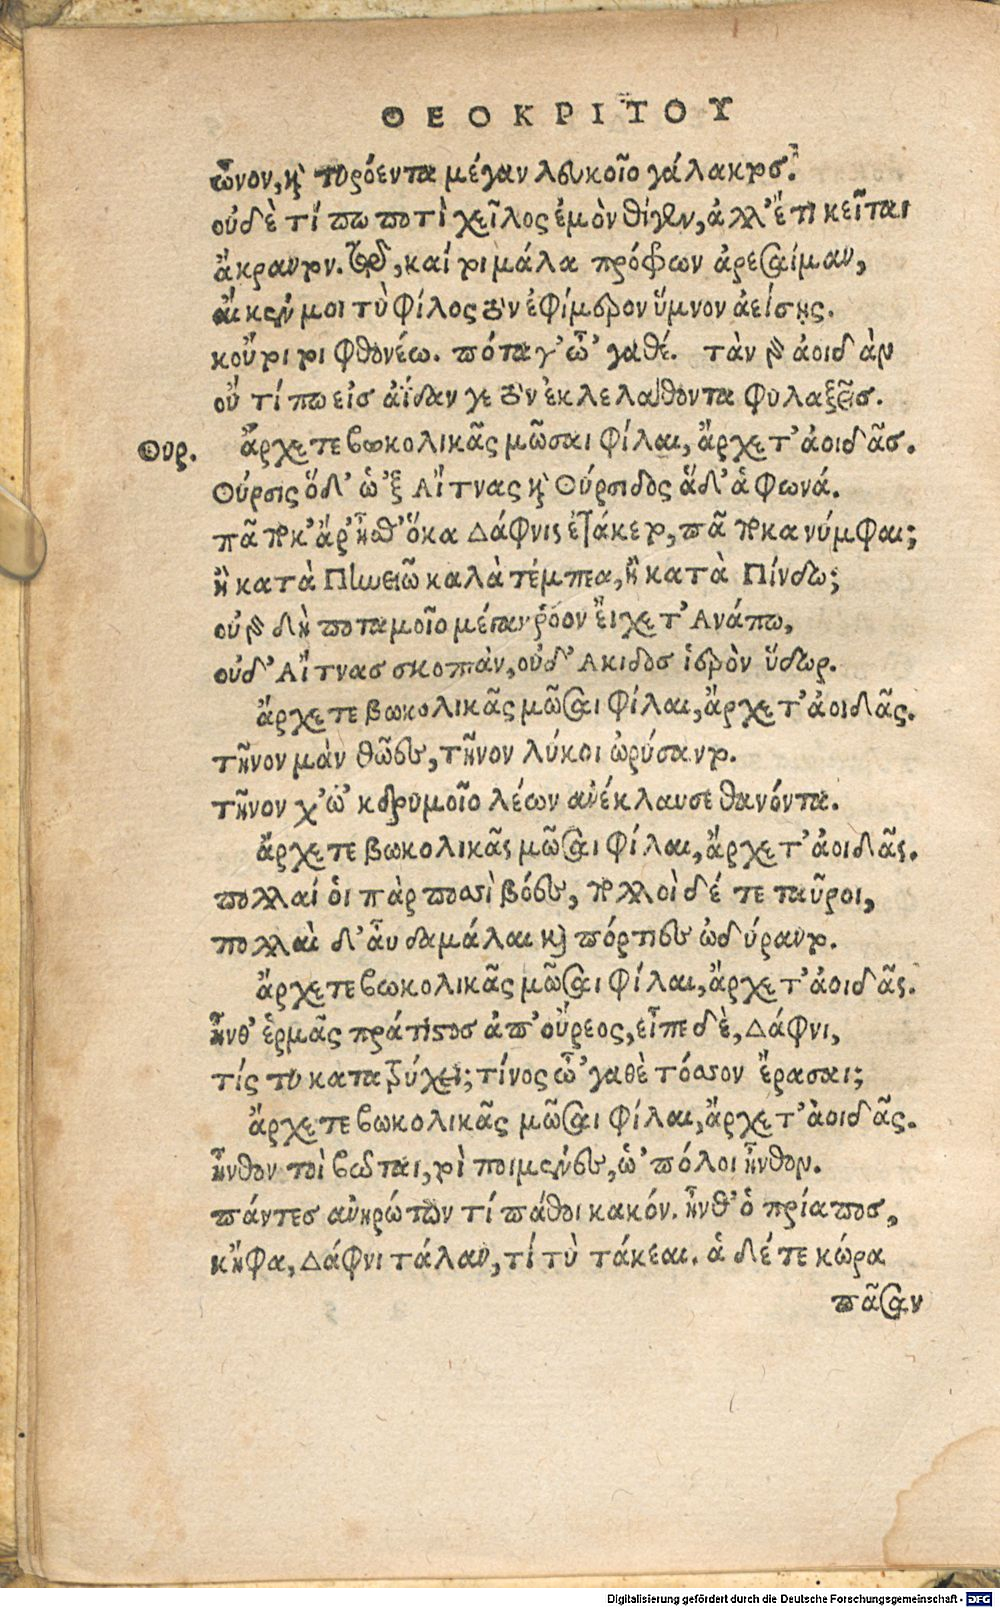 ΘΕΟΚΡΙΤΟΥ
ὦνον, καὶ τυρόεντα μέγαν λευκοῖο γάλακτος.
οὐδὲ τί πω ποτὶ χεῖλος ἐμὸν θίγεν, ἀλλ' ἔτι κεῖται
ἄχραντον. τῷ, καί τοι μάλα πρόφρων ἀρεσαίμαν,
αἴ κεν μοι τὺ φίλος τὸν ἐφίμερον ὕμνον ἀείσῃς.
κοὔ τοι τι φθονέω. πόταγ' ὦ' γαθέ. τὰν γὰρ ἀοιδὰν
οὔ τί πω εἰς ἀΐδαν γε τὸν ἐκλελαθόντα φυλαξεῖς.
Θυρ. ἄρχετε βωκολικᾶς μῶσαι φίλαι, ἄρχετ' ἀοιδᾶς.
Θύρσις ὅδ' ὡ'ξ Αἴτνας καὶ Θύρσιδος ἅδ' ἁ φωνά.
πᾶ ποκ' ἄρ' ἦσθ' ὅκα Δάφνις ἐτάκετο, πᾶ ποκα νύμφαι;
ἢ κατὰ Πηνειῶ καλὰ τέμπεα, ἢ κατὰ Πίνδω;
οὐ γὰρ δὴ ποταμοῖο μέγαν ῥόον εἴχετ' Ανάπω,
οὐδ' Αἴτνας σκοπὰν, οὐδ' Ακιδος ἱερὸν ὕδωρ.
ἄρχετε βωκολικᾶς μῶσαι φίλαι, ἄρχετ' ἀοιδᾶς.
τῆνον μὰν θῶες, τῆνον λύκοι ὠρύσαντο.
τῆνον χ' ὡ' κ δρυμοῖο λέων ἀνέκλαυσε θανόντα.
ἄρχετε βωκολικᾶς μῶσαι φίλαι, ἄρχετ' ἀοιδᾶς.
πολλαί οἱ πὰρ ποσσὶ βόες, πολλοὶ δέ τε ταῦροι,
πολλαὶ δ' αὖ δαμάλαι καὶ πόρτιες ὠδύραντο.
ἄρχετε βωκολικᾶς μῶσαι φίλαι, ἄρχετ' ἀοιδᾶς.
ἦνθ' ἑρμᾶς πράτιστος ἀπ' οὔρεος, εἶπε δὲ, Δάφνι,
τίς τυ κατατρύχει; τίνος ὦ' γαθὲ τόσσον ἔρασαι;
ἄρχετε βωκολικᾶς μῶσαι φίλαι, ἄρχετ' ἀοιδᾶς.
ἦνθον τοὶ βῶται, τοὶ ποιμένες, ὡ' πόλοι ἦνθον.
πάντες ἀνηρώτων τί πάθοι κακόν. ἦνθ' ὁ πρίαπος,
κἤφα, Δάφνι τάλαν, τί τὺ τάκεαι. ἁ δέ τε κώρα
πᾶσαν
Digitalisierung gefördert durch die Deutsche Forschungsgemeinschaft - DFG